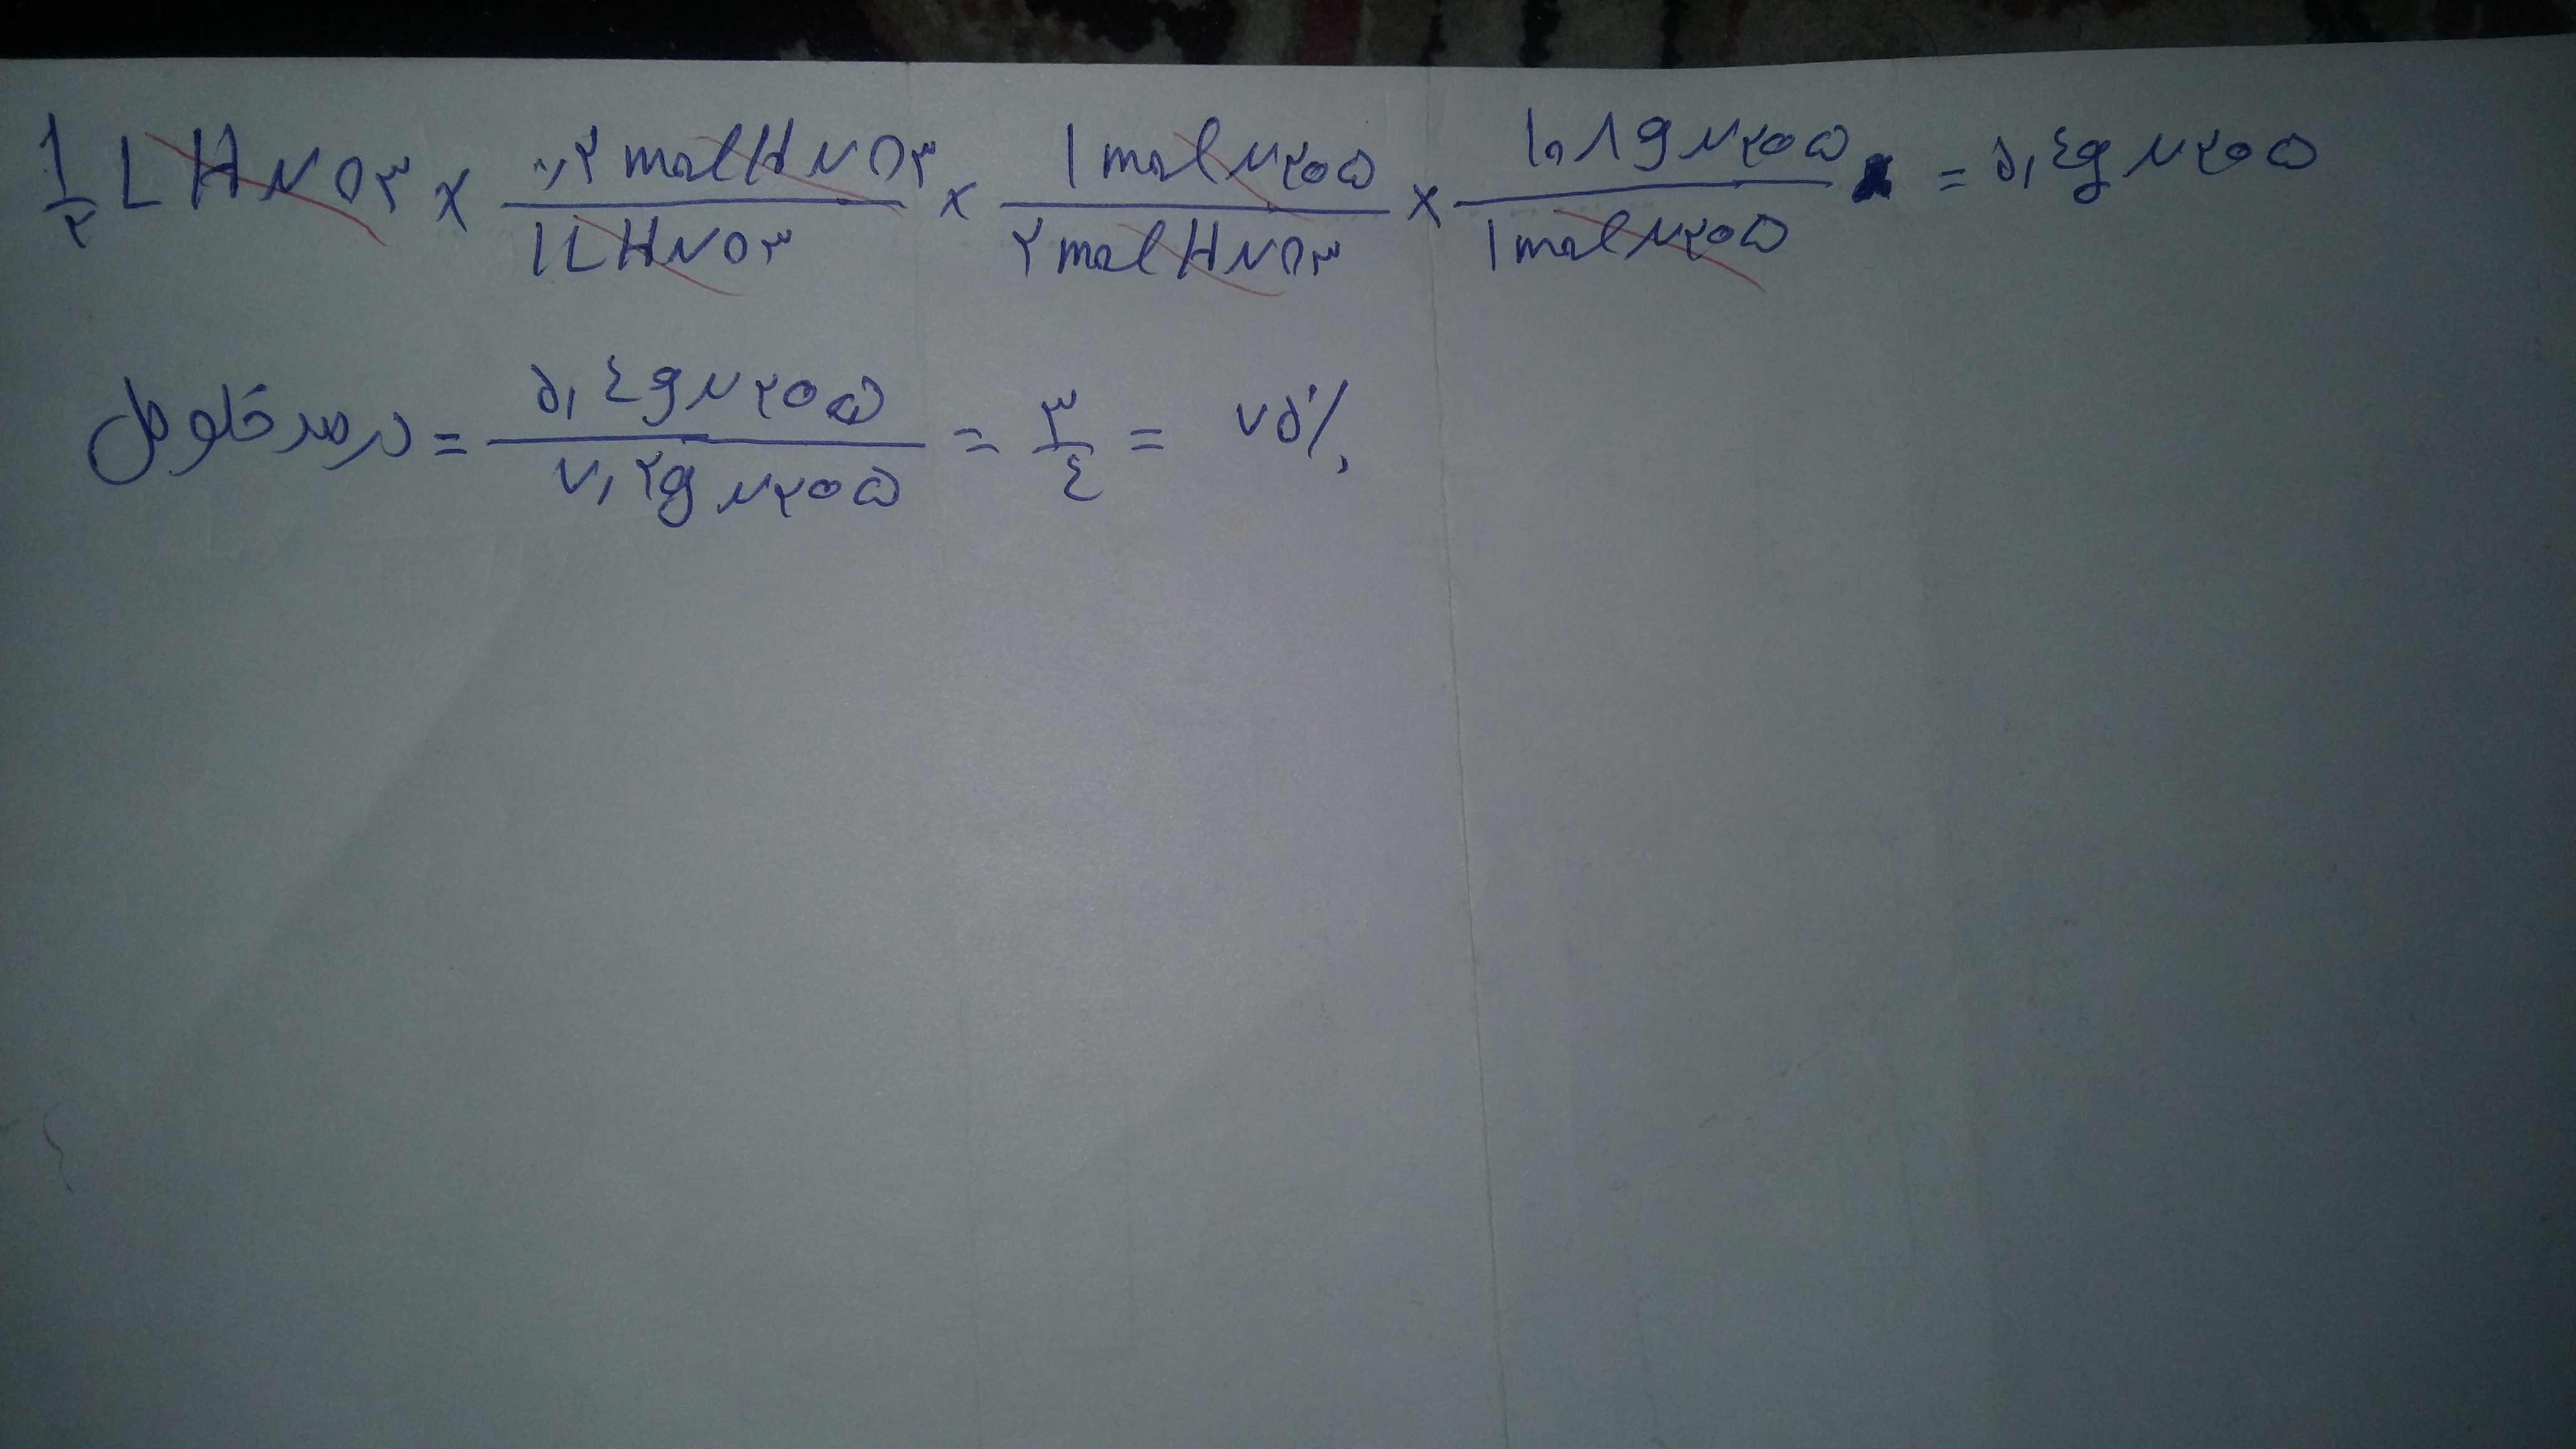 ۱/۲ L HNO۳ × ۰,۲ mol HNO۳ / ۱ L HNO۳ × ۱ mol N۲O۵ / ۲ mol HNO۳ × ۱۰۸ g N۲O۵ / ۱ mol N۲O۵ = ۵,۴ g N۲O۵
درصد خلوص = ۵,۴ g N۲O۵ / ۷,۲ g N۲O۵ = ۳/۴ = ۷۵٪